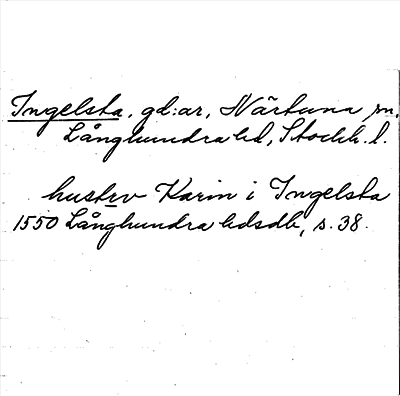 Ingelsta, gd:ar, Närtuna sn,
Långhundra hd, Stockh. l.
hustrv Karin i Ingelsta
1550 Långhundra hdsdb, s. 38.